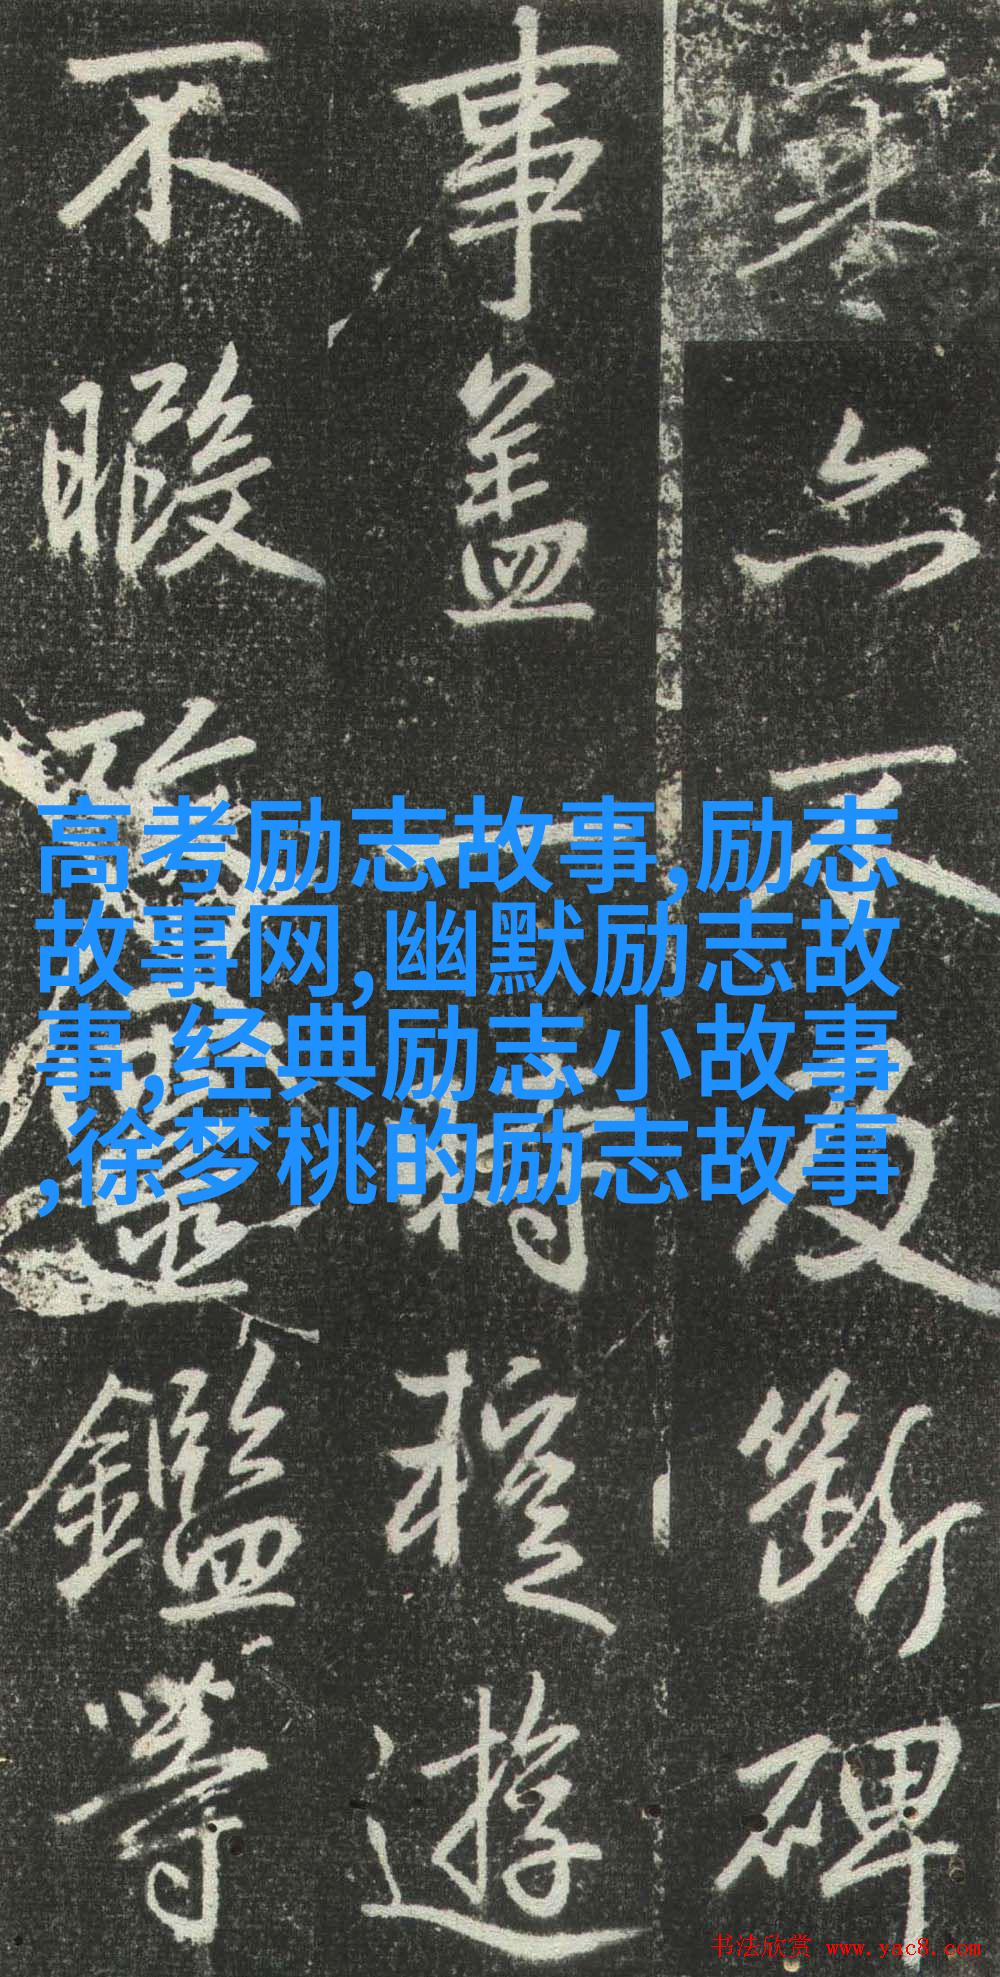 高考励志故事,励志
故事网,幽默励志故
事,经典励志小故事
,徐梦桃的励志故事
亦不及斷碑
事盖遊
不暇鑑等
书法欣赏 www.yac8.com